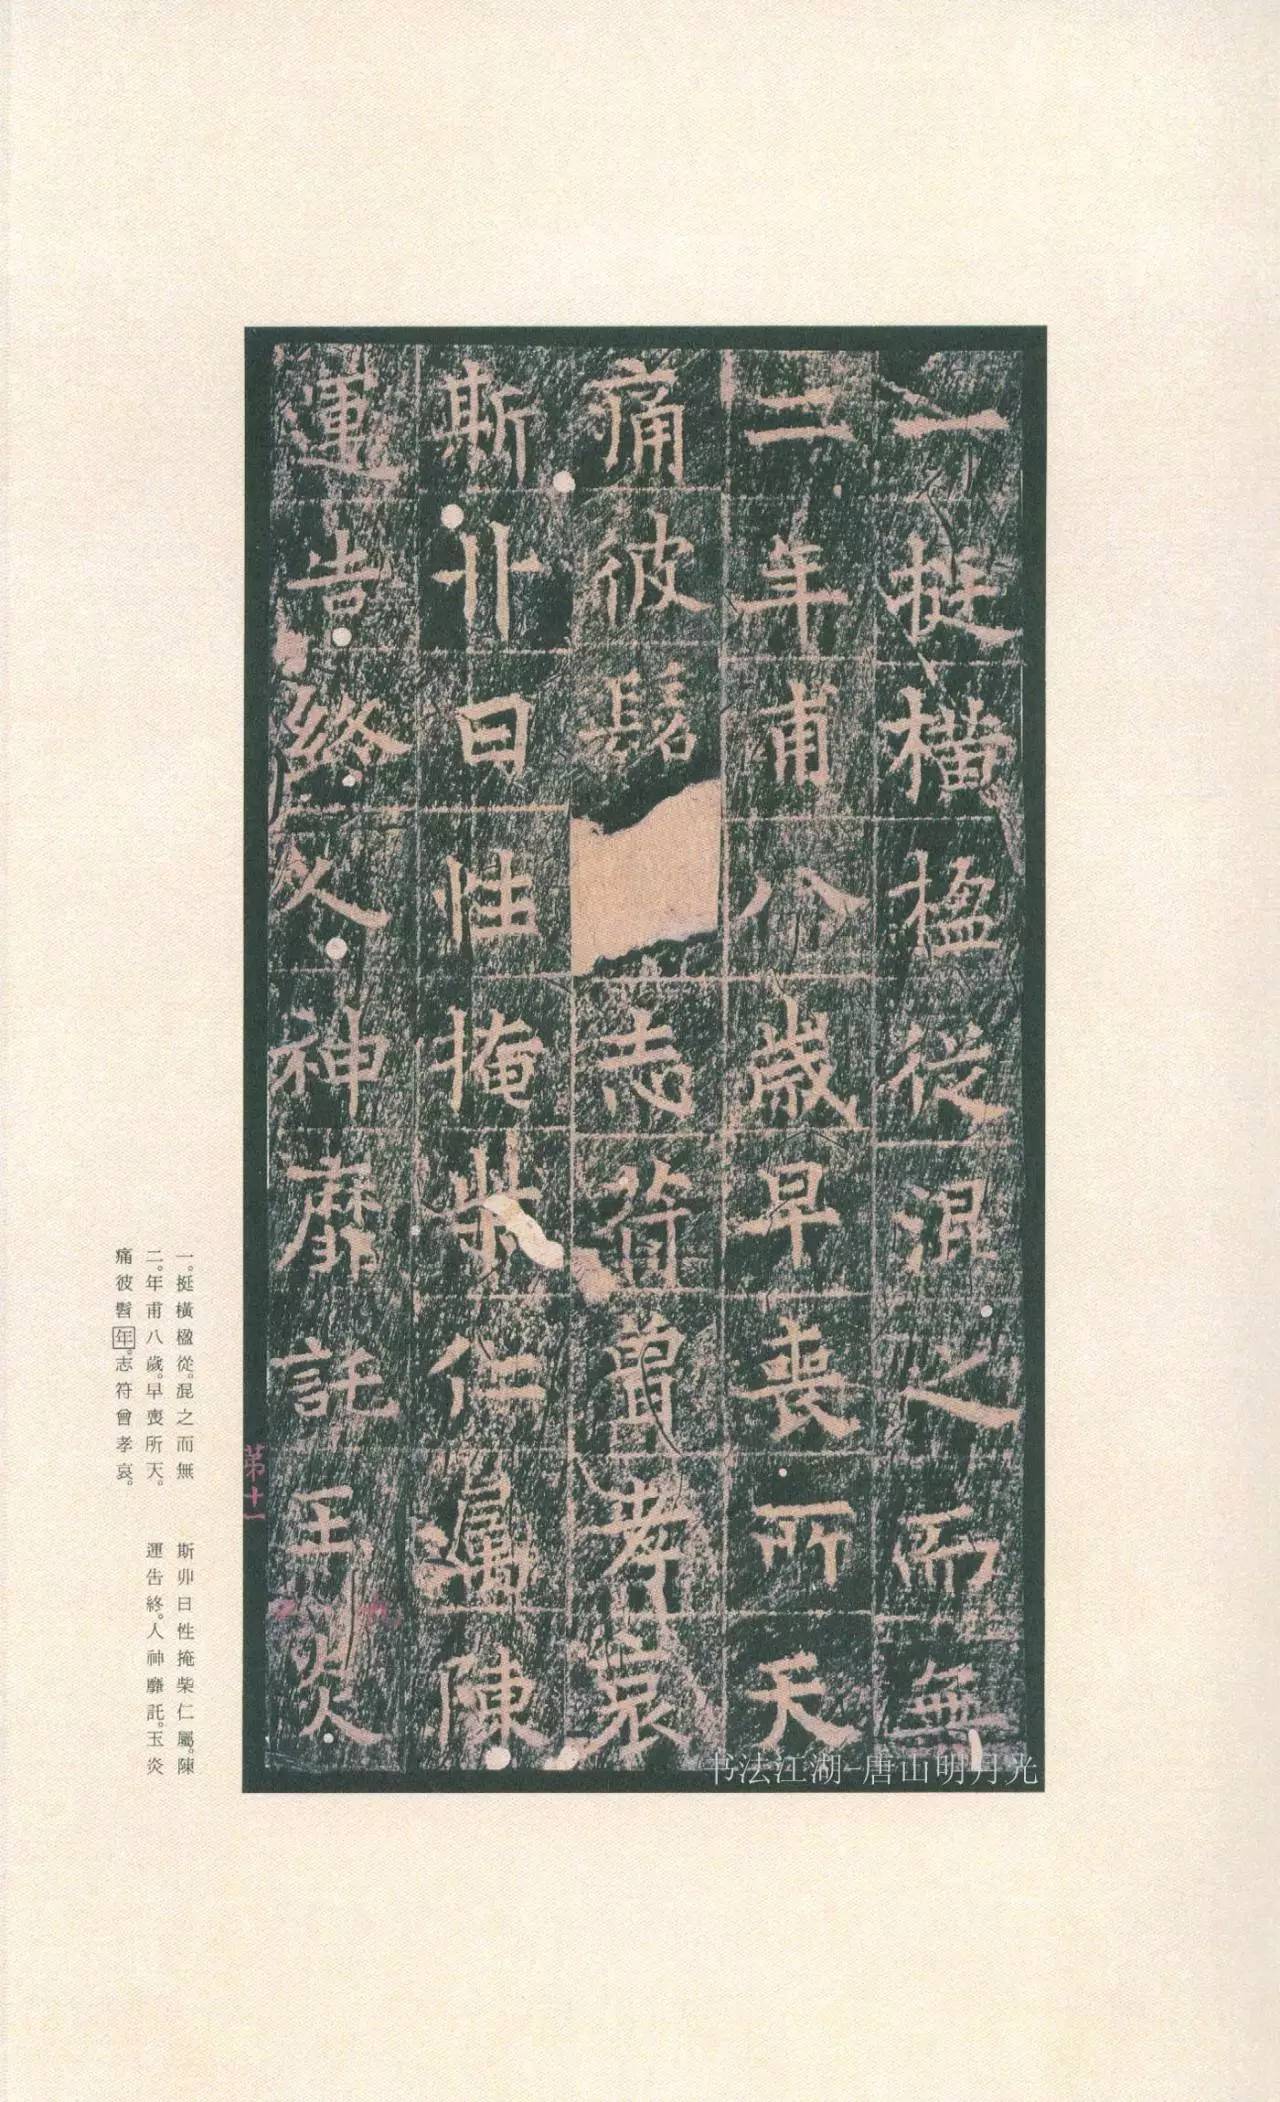 一挺橫楹從混之而無
二年甫八歲早喪所天
痛彼髫志符曾孝哀
斯卝日性掩柴仁屬陳
運告終人神靡託玉炎
第十一
一。挺橫楹從。混之而無
二。年甫八歲。早喪所天。
痛彼髫年。志符曾孝。哀
斯丱日性掩柴仁屬。陳
運告終。人神靡託。玉炎
书法江湖-唐山明月光